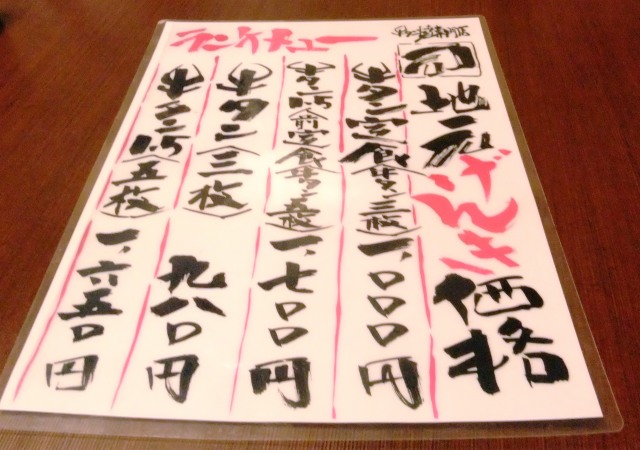 専門店
司
地元げんき価格
ランチメニュー
牛タン定食(牛タン三枚)一、〇〇〇円
牛タン1.5人前定食(牛タン五枚)一、七〇〇円
牛タン(三枚)九八〇円
牛タン1.5(五枚)一、六五〇円